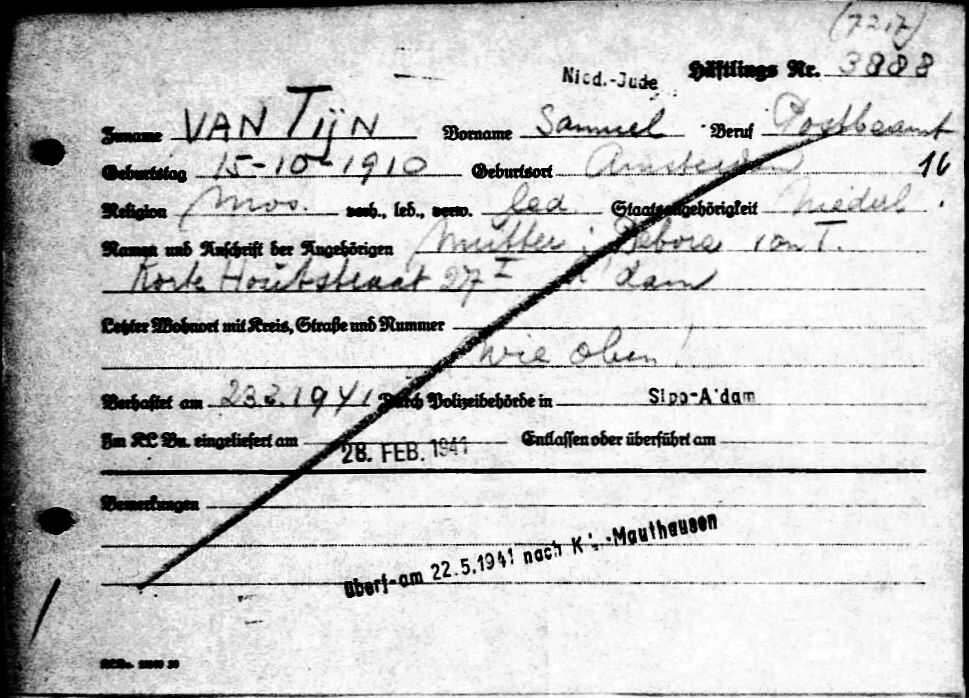 (7217)
Nied.-Jude Häftlings Nr. 3888
Zuname VAN TijN Vorname Samuel Beruf Postbeamt
Geburtstag 15-10-1910 Geburtsort Amsterdam 16
Religion Mos. verh., led., verw. led. Staatsangehörigkeit Niederl.
Namen und Anschrift der Angehörigen Mutter: Debora van T.
Korte Houtstraat 27 I A'dam
Letzter Wohnort mit Kreis, Straße und Nummer
wie oben!
Verhaftet am 23.2.1941 Durch Polizeibehörde in Sipo-A'dam
Im KL Bu. eingeliefert am 28. FEB. 1941 Entlassen oder überführt am
Bemerkungen
überf-am 22.5.1941 nach K.L.-Mauthausen